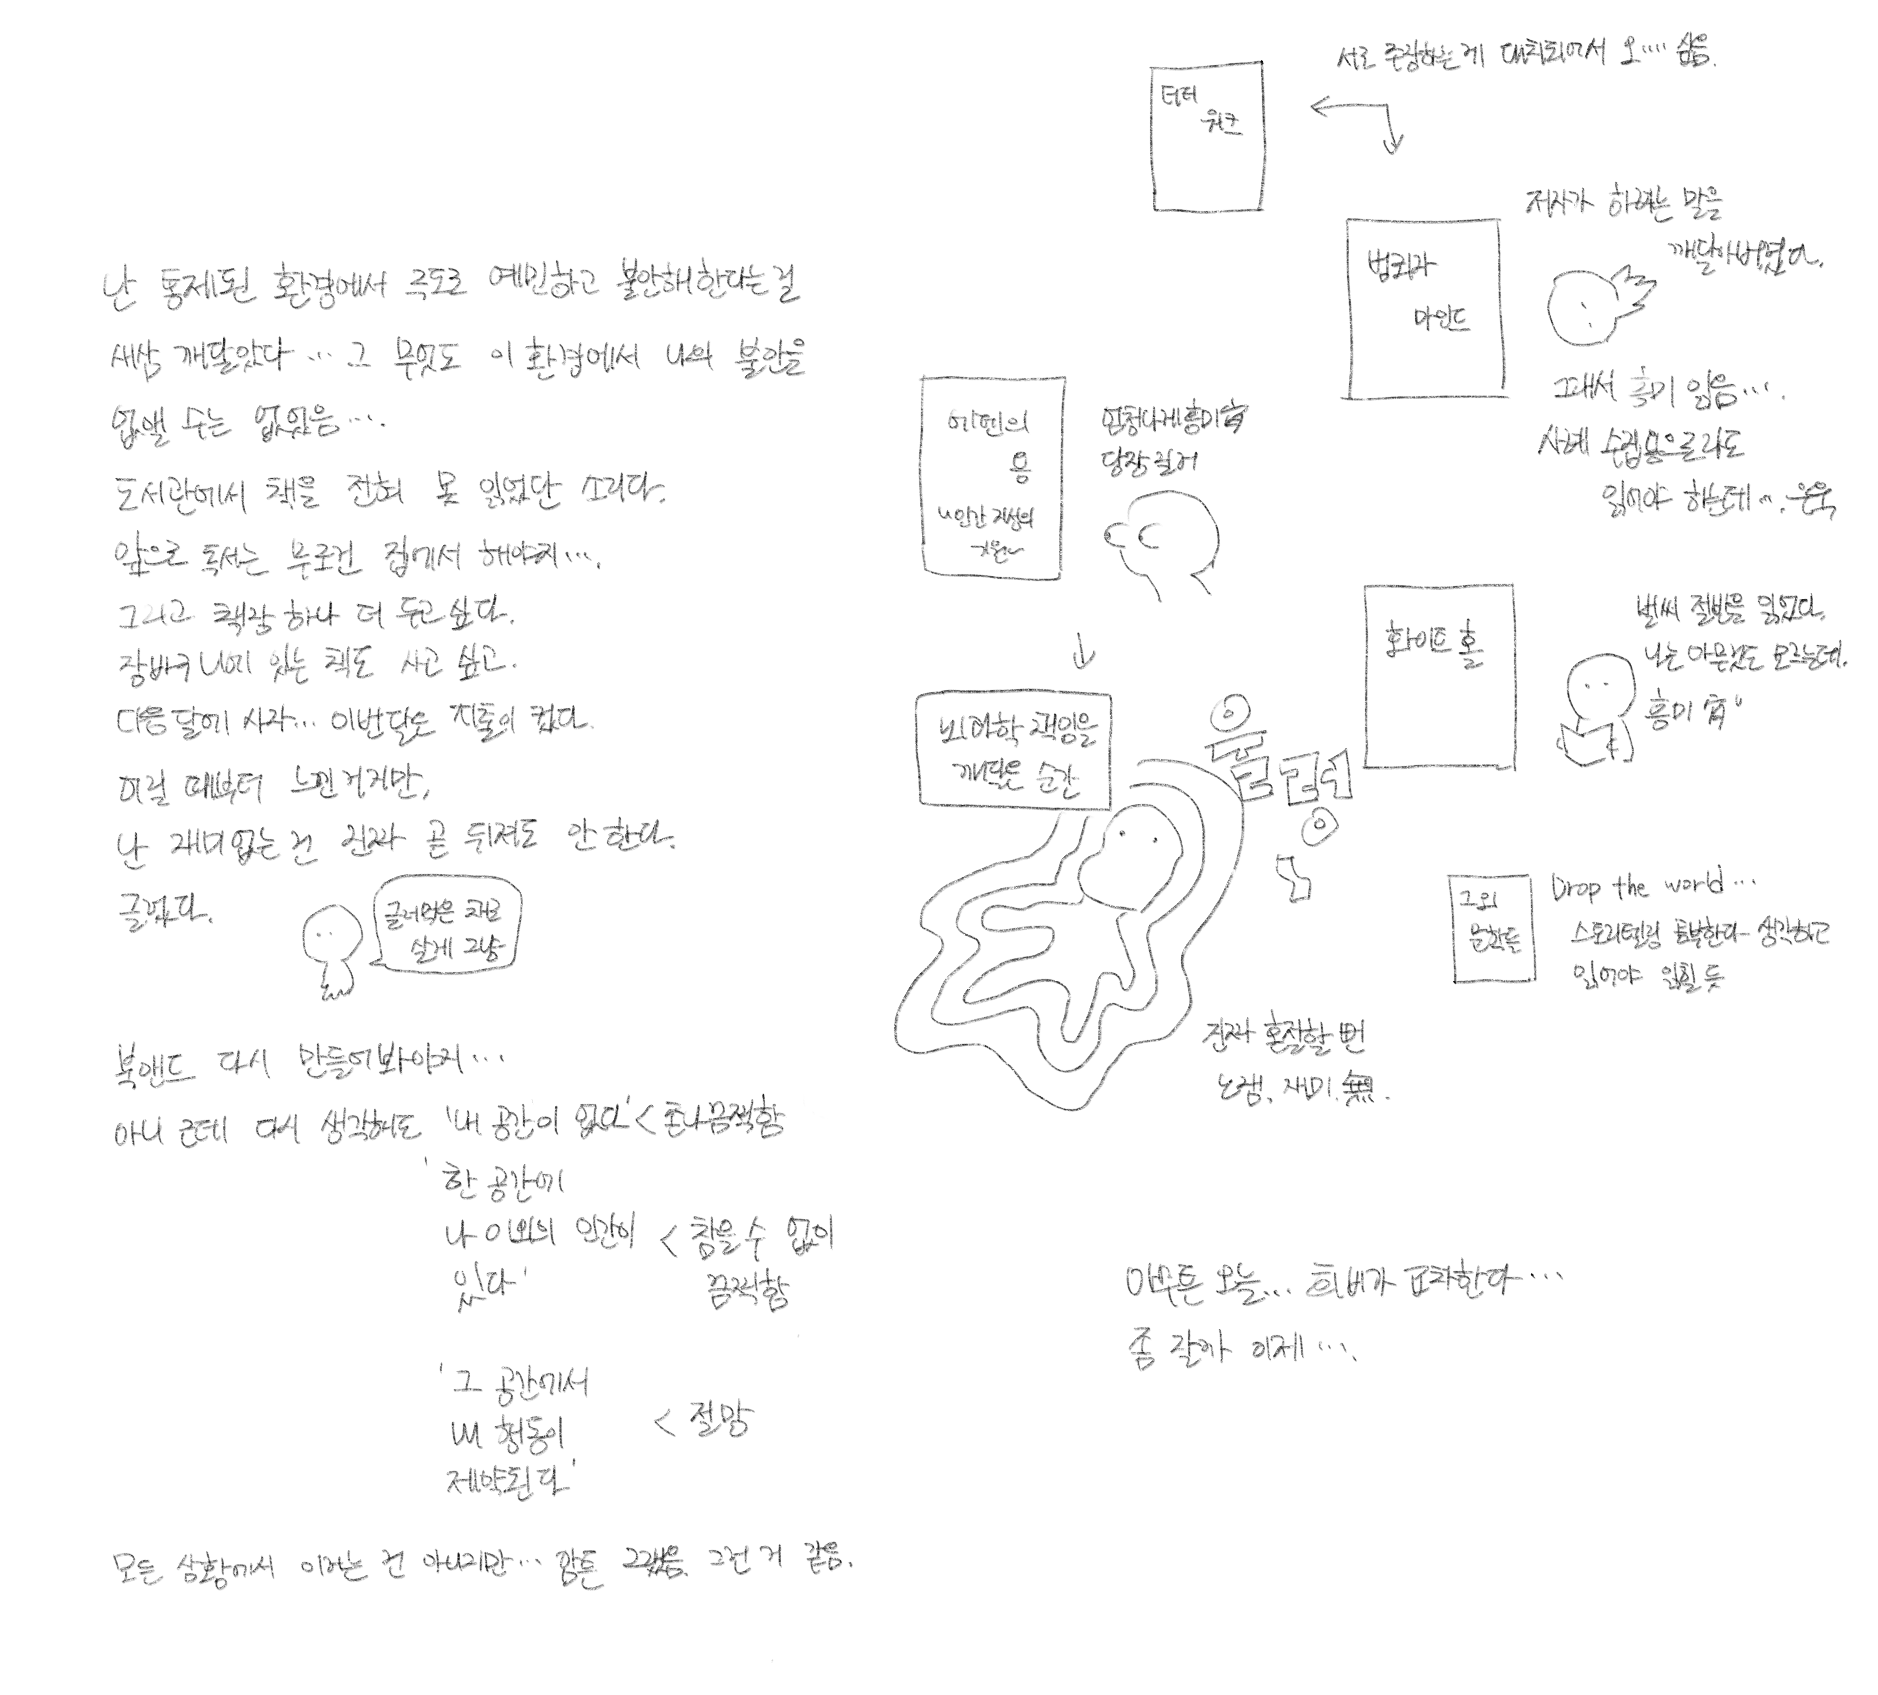 난 통제된 환경에서 극도로 예민하고 불안해한다는 걸
새삼 깨달았다… 그 무엇도 이 환경에서 나의 불안을
없앨 수는 없었음….
도서관에서 책을 전혀 못 읽었단 소리다.
앞으로 독서는 무조건 집에서 해야지….
그리고 책장 하나 더 두고 싶다.
장바구니에 있는 책도 사고 싶고.
다음달에 사자… 이번달도 지출이 컸다.
어릴 때부터 느낀 거지만,
난 재미없는 건 진짜 곧 뒤져도 안 한다.
글렀다.
글러먹은 채로
살게 그냥
북앤드 다시 만들어봐야지…
아니 근데 다시 생각해도 '내 공간이 없다' < 존나끔찍함
'한 공간에
나 이외의 인간이 < 참을 수 없이
있다' 끔찍함
'그 공간에서
내 행동이 < 절망
제약된다'
모든 상황에서 이러는 건 아니지만… 암튼 그랬음. 그런 거 같음.
서로 주장하는 게 대치되어서 오…. 싶음.
딥
워크
저자가 하려는 말을
깨달아버렸다.
범퀴자
마인드
그래서 흥미 잃음….
사례 수집용으로라도
읽어야 하는데…. 우욱
에덴의
용
엄청나게흥미有
당장 읽어
~인간 지성의
기원~
화이트 홀
벌써 절반을 읽었다.
나는 아무것도 모르는데.
흥미 有"
뇌과학 책임을
깨달은 순간
울렁
진짜 혼절할 뻔
노잼, 재미 無.
그 외
문학들
Drop the world…
스토리텔링 공부한다 생각하고
읽어야 읽힐 듯
아무튼 오늘… 희비가 교차한다…
좀 잘까 이제….